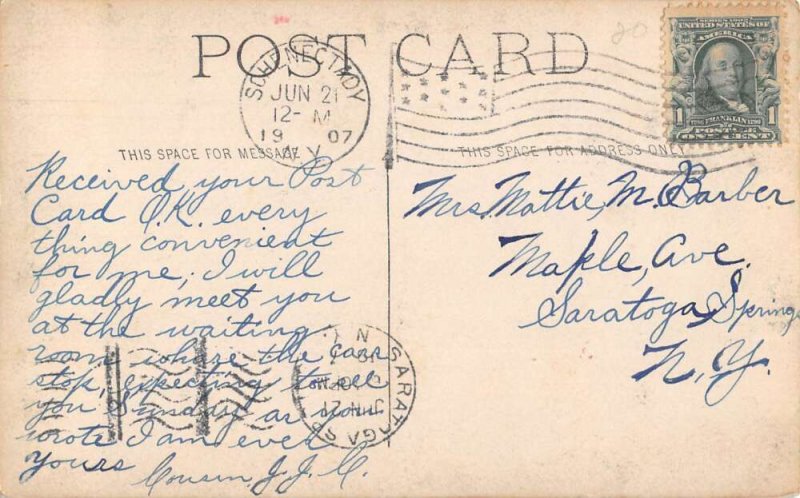 POST CARD
SCHENECTADY
JUN 21
12- M
1907
N.Y.
SERIES 1902
UNITED STATES OF
AMERICA
1 1
FRANKLIN
POSTAGE
ONE CENT
THIS SPACE FOR MESSAGE
THIS SPACE FOR ADDRESS ONLY
Received your Post
Card O.K. every
thing convenient
for me, I will
gladly meet you
at the waiting
room whare the car
stop, expecting to see
you Sunday as you
wrote I am ever
yours
Cousin J.J.C.
Mrs. Mattie, M. Barber
Maple, Ave.
Saratoga, Springs
N.Y.
SARATOGA SP
N.Y.
JUN 21